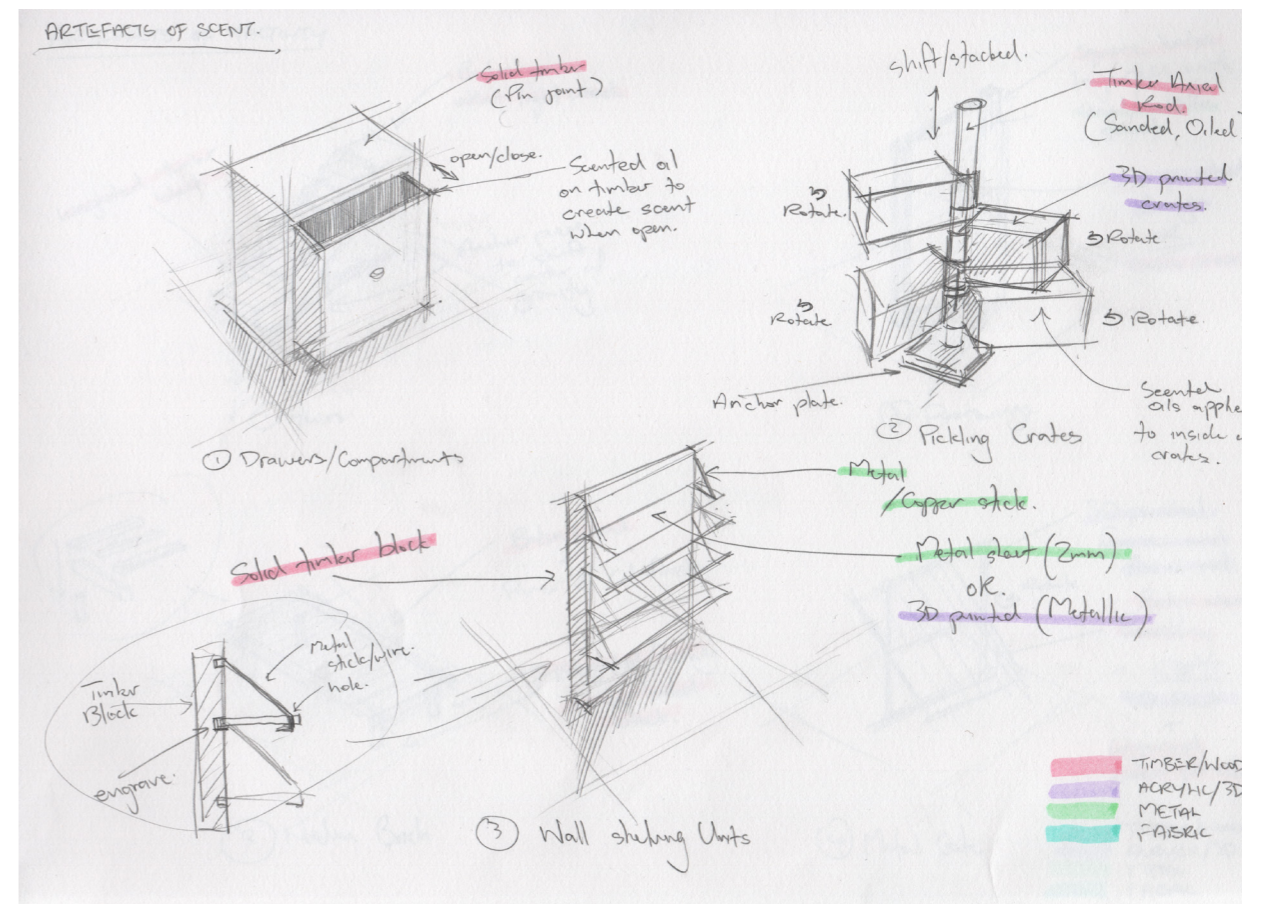 ARTEFACTS OF SCENT.
Solid timber
(Pin joint)
open/close.
Scented oil
on timber to
create scent
when open.
① Drawers/Compartments
shift/stacked.
Timber Axial
Rod.
(Sanded, Oiled
3D printed
crates.
Rotate.
Rotate
Rotate
Rotate.
Anchor plate.
Scented
oils applie
to inside
crates.
② Pickling Crates
Metal
/Copper stick.
Metal sheet (2mm)
OR.
3D printed (Metallic)
Solid timber block
Metal
stick/wire.
hole.
Timber
Block
engrave.
③ Wall shelving Units
TIMBER/WOOD
ACRYLIC/3D
METAL
FABRIC